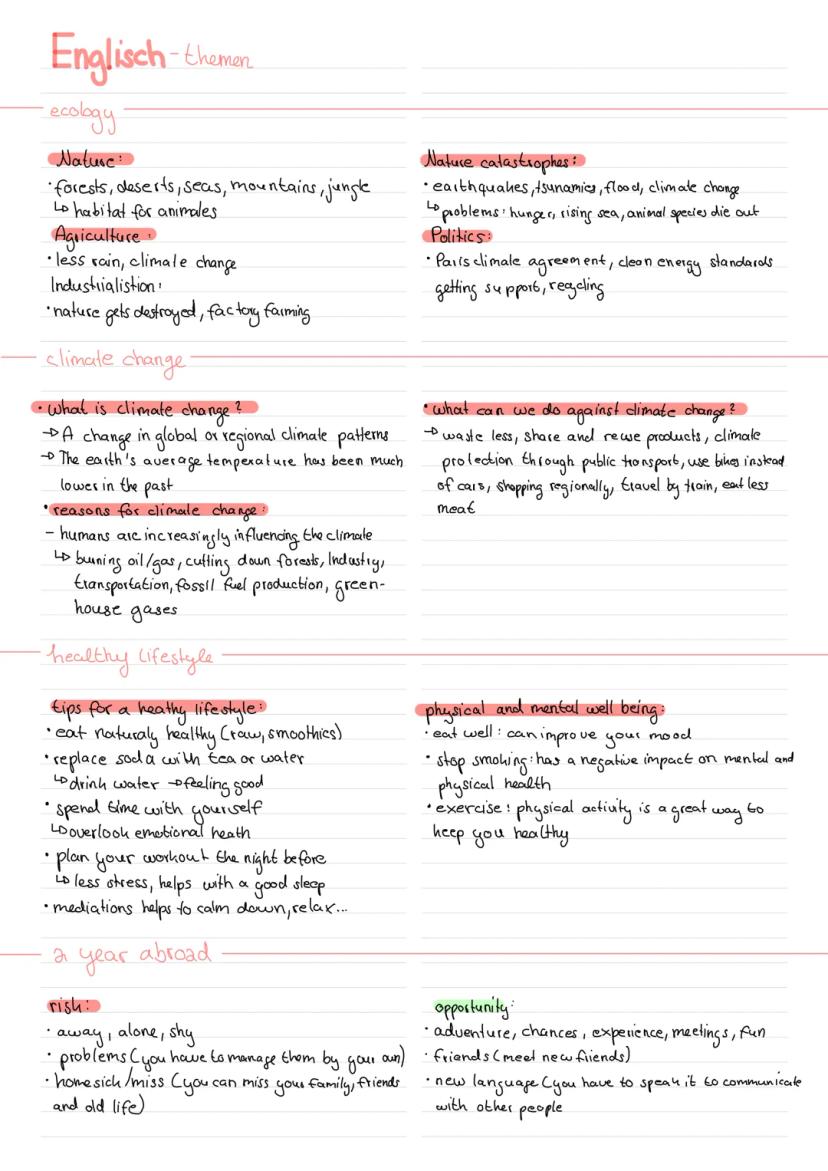 Englisch - themen
ecology
Nature:
· forests, deserts, seas, mountains, jungle
↳ habitat for animales
Agriculture:
· less rain, climate change
Industrialistion:
· nature gets destroyed, factory farming
Nature catastrophes:
· earthquakes, tsunamies, flood, climate change
↳ problems: hunger, rising sea, animal species die out
Politics:
· Paris climate agreement, clean energy standards
getting support, recycling
climate change
· What is climate change?
→ A change in global or regional climate patterns
→ The earth's average temperature has been much
lower in the past
· reasons for climate change:
- humans are increasingly influencing the climate
↳ burning oil/gas, cutting down forests, Industry,
transportation, fossil fuel production, green-
house gases
· what can we do against climate change?
→ waste less, share and reuse products, climate
protection through public transport, use bikes instead
of cars, shopping regionally, travel by train, eat less
meat
healthy lifestyle
tips for a heathy lifestyle:
· eat naturaly healthy (raw, smoothies)
· replace soda with tea or water
↳ drink water → feeling good
· spend time with yourself
↳ overlook emotional heath
· plan your workout the night before
↳ less stress, helps with a good sleep
· mediations helps to calm down, relax...
physical and mental well being:
· eat well: can improve your mood
· stop smoking: has a negative impact on mental and
physical health
· exercise: physical activity is a great way to
keep you healthy
a year abroad
risk:
· away, alone, shy
· problems (you have to manage them by your own)
· homesick/miss (you can miss your family, friends
and old life)
opportunity:
· adventure, chances, experience, meetings, fun
· friends (meet new friends)
· new language (you have to speak it to communicate
with other people